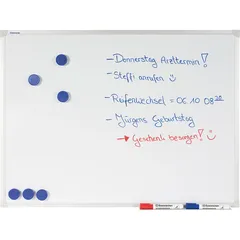 - Donnerstag Arzttermin!
- Steffi anrufen
- Reifenwechsel = 06 10 08 30
- Jürgens Geburtstag
→ Geschenk besorgen!